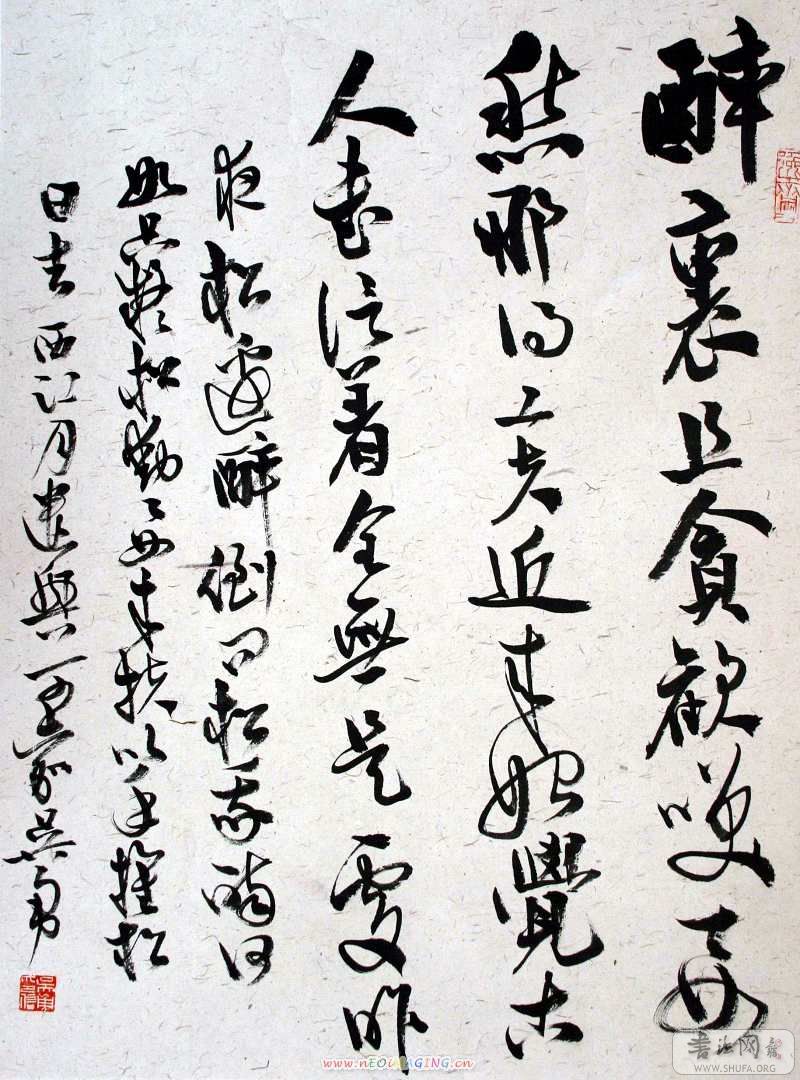 醉裏且貪歡笑要
愁那得工夫近來始覺古
人書信着全無是處昨
夜松邊醉倒問松我醉何
如只疑松動要來扶以手推松
曰去 西江月遣興 吳
www.nEOiMAGING.cn
书法网
WWW.SHUFA.ORG